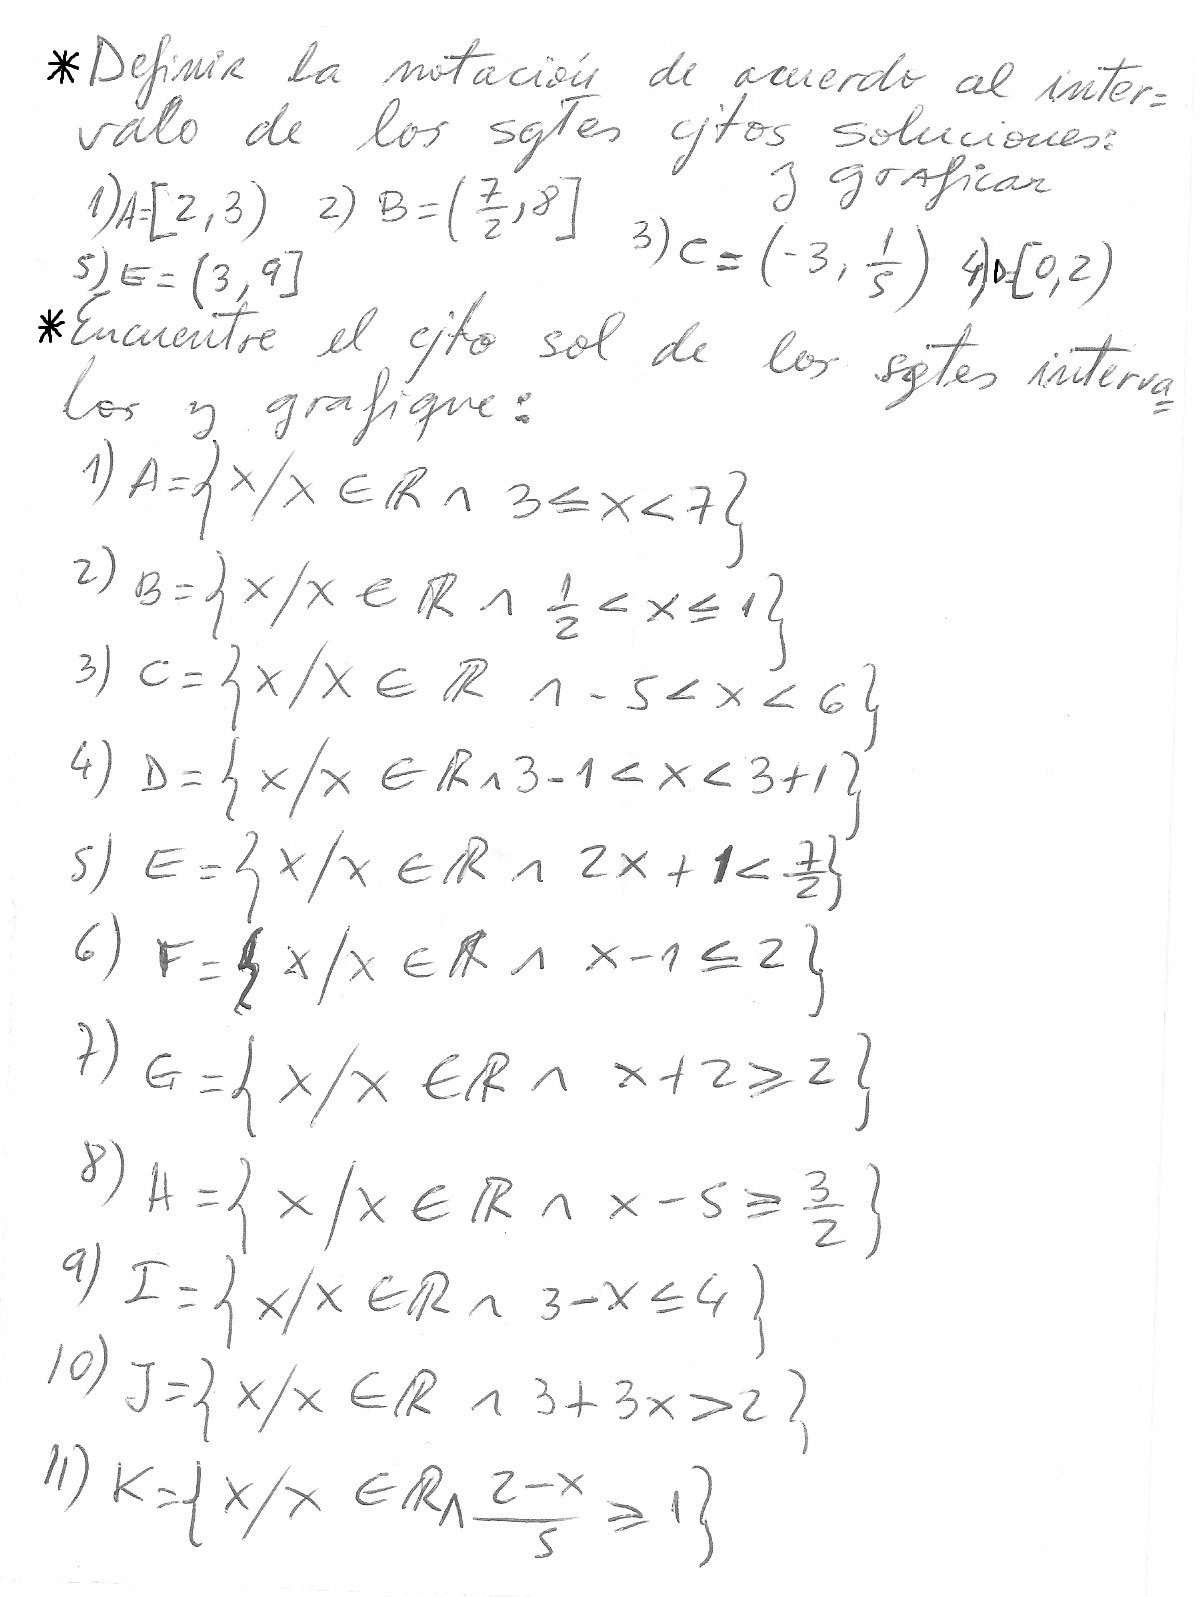 * Definir la notación de acuerdo al inter=
valo de los sgtes cjtos soluciones:
y graficar
1) A=[2,3) 2) B=(7/2,8] 3) C=(-3, 1/5) 4) D=[0,2)
5) E=(3,9]
* Encuentre el cjto sol de los sgtes interva=
los y grafique:
1) A={x/x ∈ ℝ ∧ 3≤x<7}
2) B={x/x ∈ ℝ ∧ 1/2 < x ≤ 1}
3) C={x/x ∈ ℝ ∧ -5<x<6}
4) D={x/x ∈ ℝ ∧ 3-1<x<3+1}
5) E={x/x ∈ ℝ ∧ 2x+1<7/2}
6) F={x/x ∈ ℝ ∧ x-1≤2}
7) G={x/x ∈ ℝ ∧ x+2≥2}
8) H={x/x ∈ ℝ ∧ x-5≥3/2}
9) I={x/x ∈ ℝ ∧ 3-x≤4}
10) J={x/x ∈ ℝ ∧ 3+3x>2}
11) K={x/x ∈ ℝ ∧ (2-x)/5 ≥ 1}